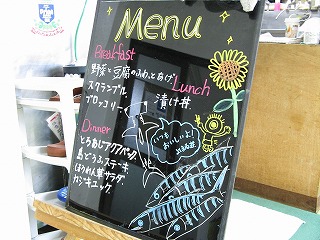 Menu
Breakfast
野菜と豆腐のみそ
スクランブル
ブロッコリー
Lunch
漬け丼
Dinner
とろあじアクアパッツァ
島とうふステーキ
ほうれん草サラダ
カジキユッケ
いつも
おいしいよ!